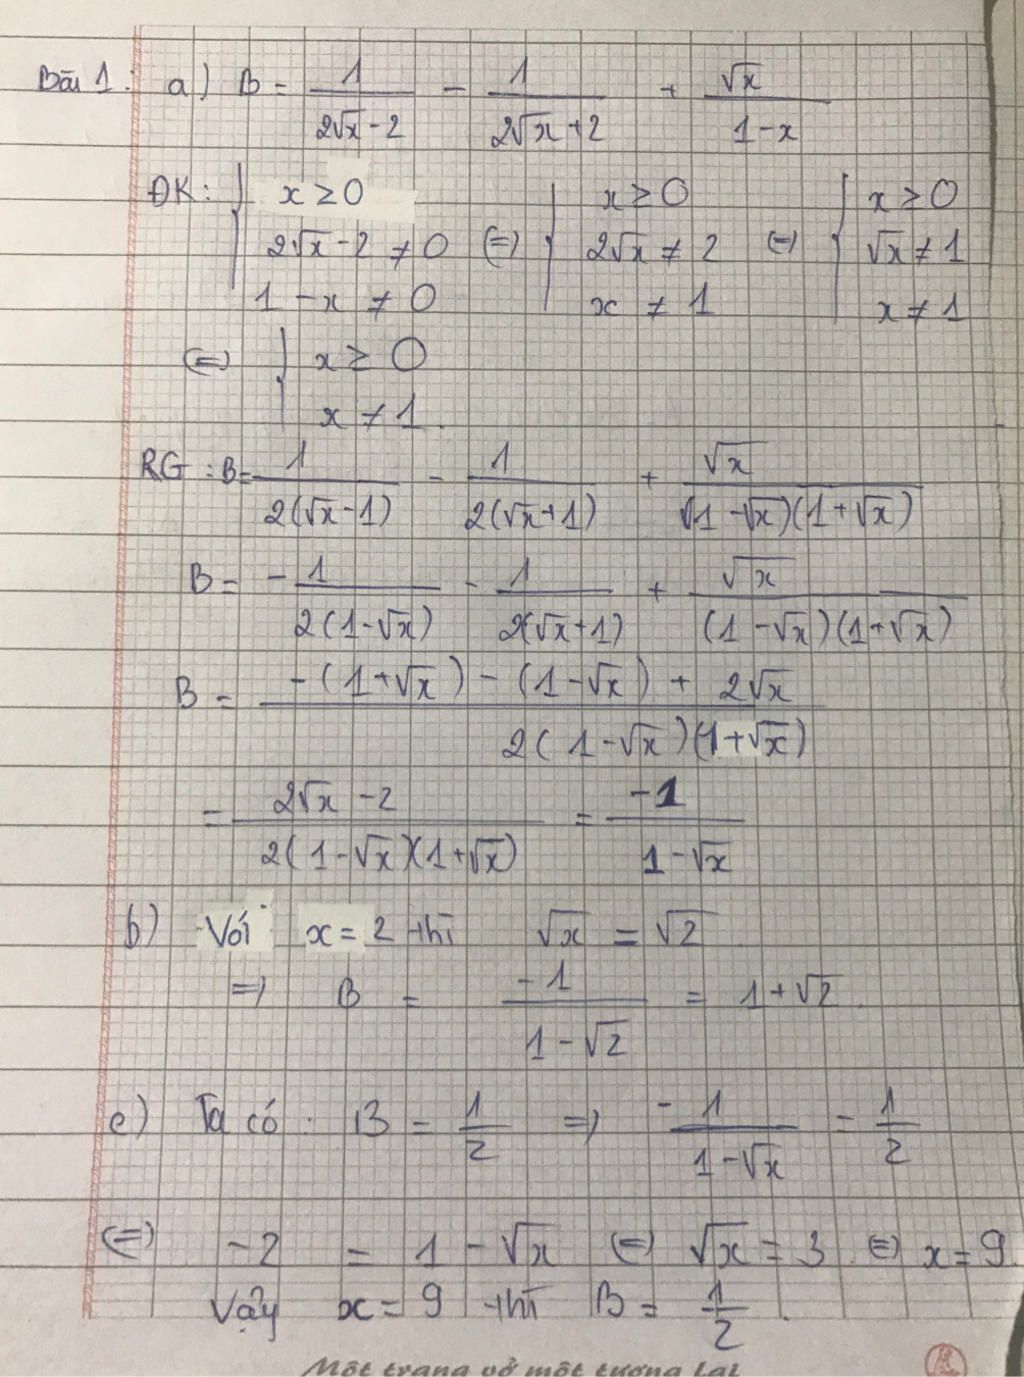 Bài 1: a) B = 1/(2√x - 2) - 1/(2√x + 2) + √x/(1 - x)
ĐK: { x ≥ 0 ; 2√x - 2 ≠ 0 ; 1 - x ≠ 0 (=) { x ≥ 0 ; 2√x ≠ 2 ; x ≠ 1 (=) { x ≥ 0 ; √x ≠ 1 ; x ≠ 1
(=) { x ≥ 0 ; x ≠ 1.
RG: B = 1/(2(√x - 1)) - 1/(2(√x + 1)) + √x/((1 - √x)(1 + √x))
B = -1/(2(1 - √x)) - 1/(2(√x + 1)) + √x/((1 - √x)(1 + √x))
B = (-(1 + √x) - (1 - √x) + 2√x)/(2(1 - √x)(1 + √x))
= (2√x - 2)/(2(1 - √x)(1 + √x)) = -1/(1 - √x)
b) Với x = 2 thì √x = √2
=) B = -1/(1 - √2) = 1 + √2.
c) Ta có: B = 1/2 =) -1/(1 - √x) = 1/2
(=) -2 = 1 - √x (=) √x = 3 (=) x = 9
Vậy x = 9 thì B = 1/2.
Một trang vở một tương lai